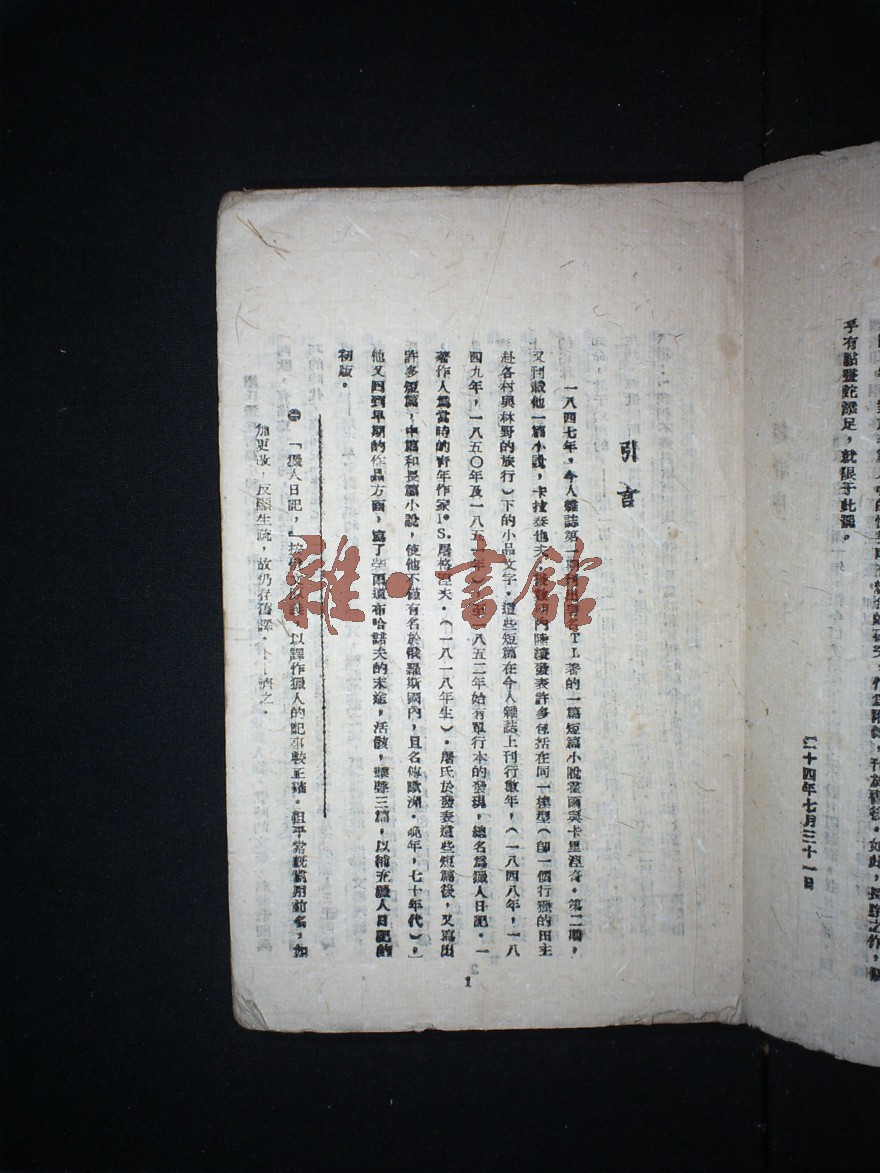 乎有點畫蛇添足，就狠于此罷。
二十四年七月三十一日
引言
一八四七年，今人雜誌第一期刊出署名T. L.著的一篇短篇小說霍爾與卡里涅奇。第二期，
又刊載他一篇小說，卡拉泰也夫。數期內陸續發表許多包括在同一模型（卽一個行獵的田主
赴各村與林野的旅行）下的小品文字。這些短篇在今人雜誌上刊行數年，（一八四八年，一八
四九年，一八五〇年及一八五一年）至一八五二年始有單行本的發現，總名爲獵人日記。㊀
著作人爲當時的靑年作家I. S.屠格涅夫。（一八一八年生）。屠氏於發表這些短篇後，又寫出
許多短篇，中篇和長篇小說，使他不僅有名於俄羅斯國內，且名傳歐洲。晚年，七十年代），
他又囘到早期的作品方面，寫了柴爾道布哈諾夫的末途，活骸，響聲三篇，以補充獵人日記的
初版。
㊀「獵人日記，」按 以譯作獵人的記事較正確。但平常旣慣用前名，如
加更改，反顯生疏，故仍存舊譯。 濟之。
1
雜·書館